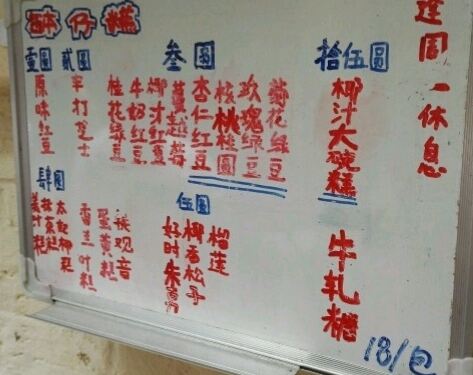 砵仔糕
逢周一休息
壹圆
原味红豆
贰圆
车打芝士
叁圆
桂花绿豆
牛奶红豆
椰汁红豆
蔓越莓
杏仁红豆
核桃桂圆
玫瑰绿豆
菊花绿豆
拾伍圆
椰汁大碗糕
肆圆
姜汁糕
抹茶糕
香兰叶糕
蛋黄糕
铁观音
伍圆
好时朱古力
椰香松子
榴莲
牛轧糖
18/包